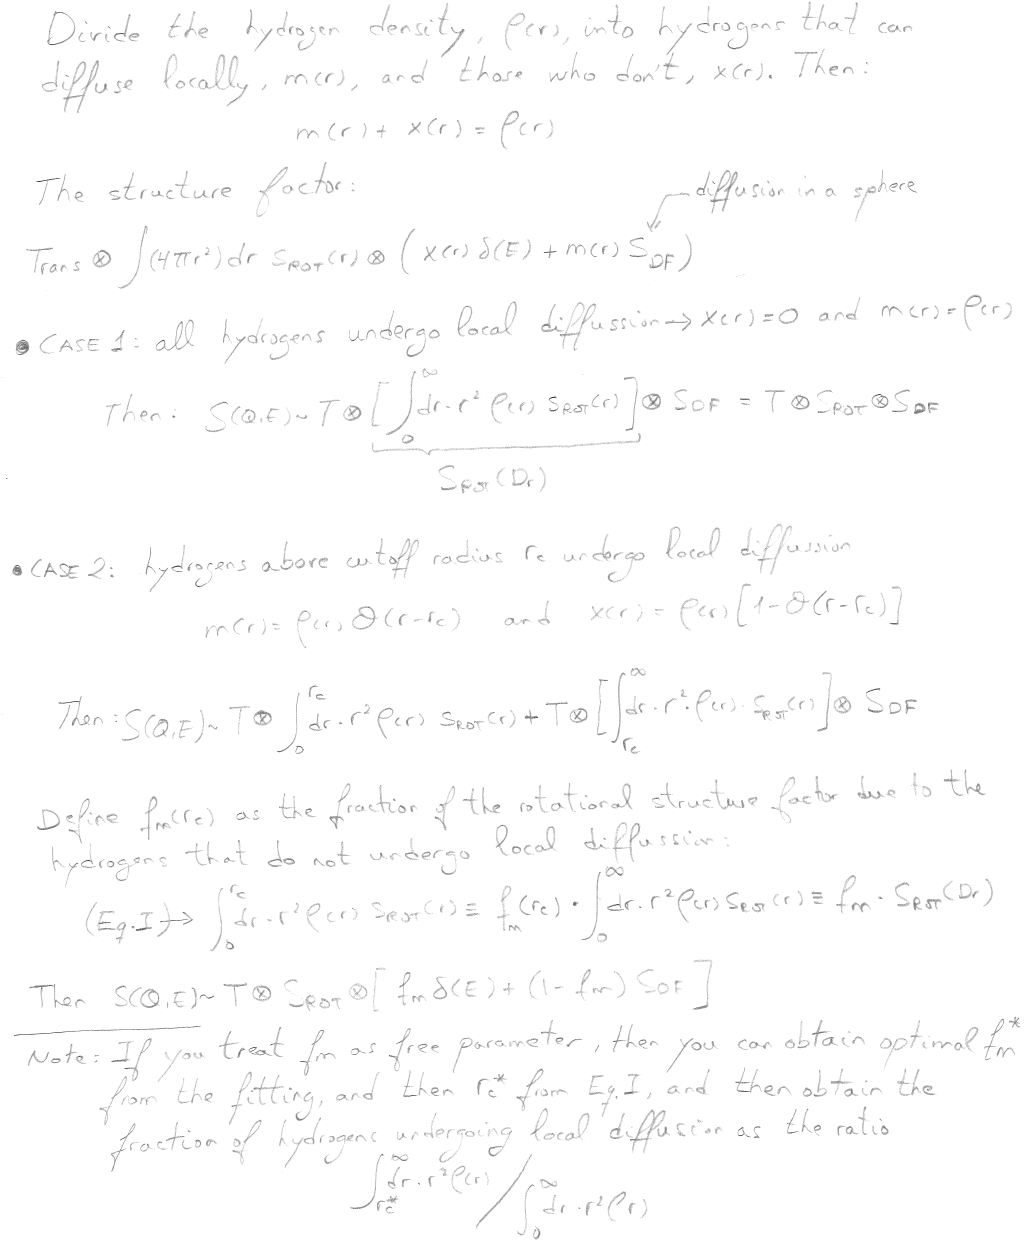 Divide the hydrogen density, ρ(r), into hydrogens that can
diffuse locally, m(r), and those who don't, x(r). Then:
m(r) + x(r) = ρ(r)
The structure factor:
diffusion in a sphere
Trans ⊗ ∫(4πr²) dr S_ROT(r) ⊗ ( x(r) δ(E) + m(r) S_DF )
• CASE 1: all hydrogens undergo local diffussion → x(r)=0 and m(r)=ρ(r)
Then: S(Q,E) ~ T ⊗ [ ∫_0^∞ dr·r² ρ(r) S_ROT(r) ] ⊗ S_DF = T ⊗ S_ROT ⊗ S_DF
S_ROT(D_r)
• CASE 2: hydrogens above cutoff radius r_c undergo local diffussion
m(r) = ρ(r) θ(r-r_c) and x(r) = ρ(r) [1-θ(r-r_c)]
Then: S(Q,E) ~ T ⊗ ∫_0^{r_c} dr·r² ρ(r) S_ROT(r) + T ⊗ [ ∫_{r_c}^∞ dr·r²·ρ(r)·S_ROT(r) ] ⊗ S_DF
Define f_m(r_c) as the fraction of the rotational structure factor due to the
hydrogens that do not undergo local diffussion:
(Eq.I) → ∫_0^{r_c} dr·r² ρ(r) S_ROT(r) ≡ f_m(r_c) · ∫_0^∞ dr·r² ρ(r) S_ROT(r) ≡ f_m · S_ROT(D_r)
Then S(Q,E) ~ T ⊗ S_ROT ⊗ [ f_m δ(E) + (1-f_m) S_DF ]
Note: If you treat f_m as free parameter, then you can obtain optimal f_m^*
from the fitting, and then r_c^* from Eq.I, and then obtain the
fraction of hydrogens undergoing local diffusion as the ratio
∫_{r_c^*}^∞ dr·r² ρ(r) / ∫_0^∞ dr·r² ρ(r)